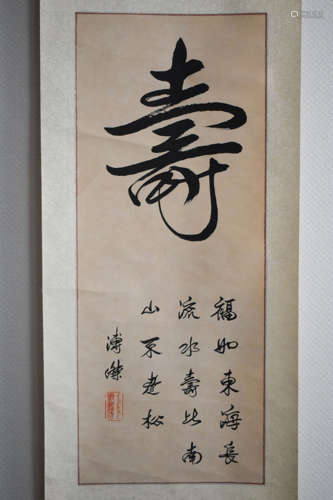 壽
福如東海長
流水壽比南
山不老松
溥傑